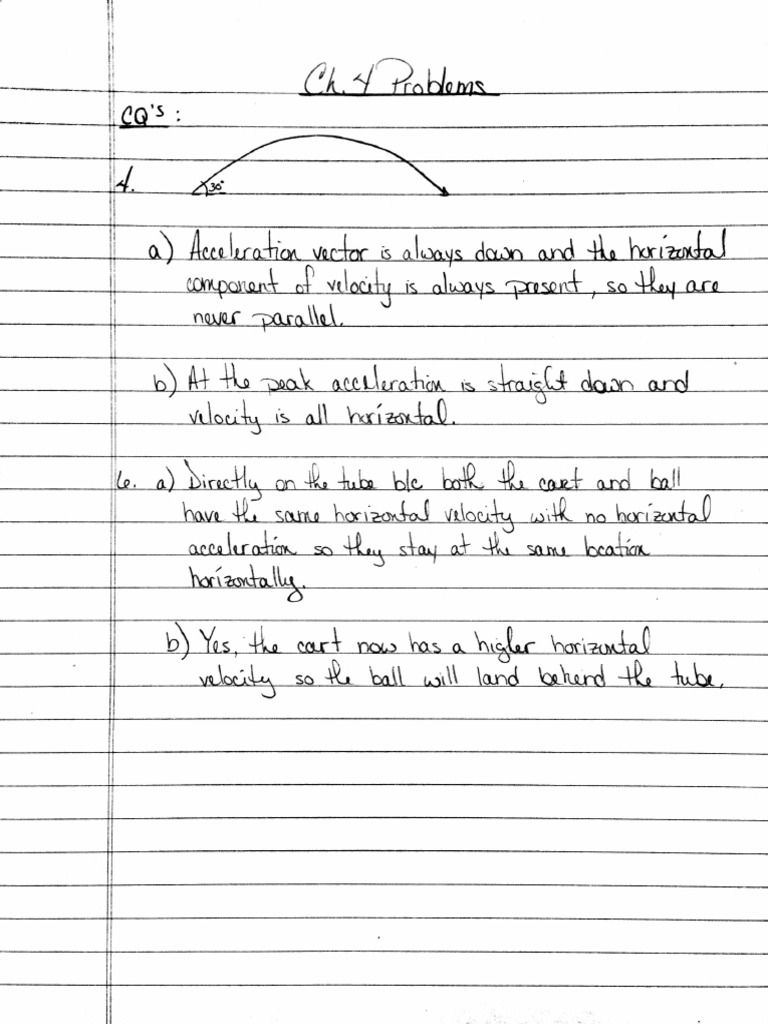 Ch. 4 Problems
CQ's :
4.
30°
a) Acceleration vector is always down and the horizontal
component of velocity is always present, so they are
never parallel.
b) At the peak acceleration is straight down and
velocity is all horizontal.
6. a) Directly on the tube b/c both the cart and ball
have the same horizontal velocity with no horizontal
acceleration so they stay at the same location
horizontally.
b) Yes, the cart now has a higher horizontal
velocity so the ball will land behind the tube.